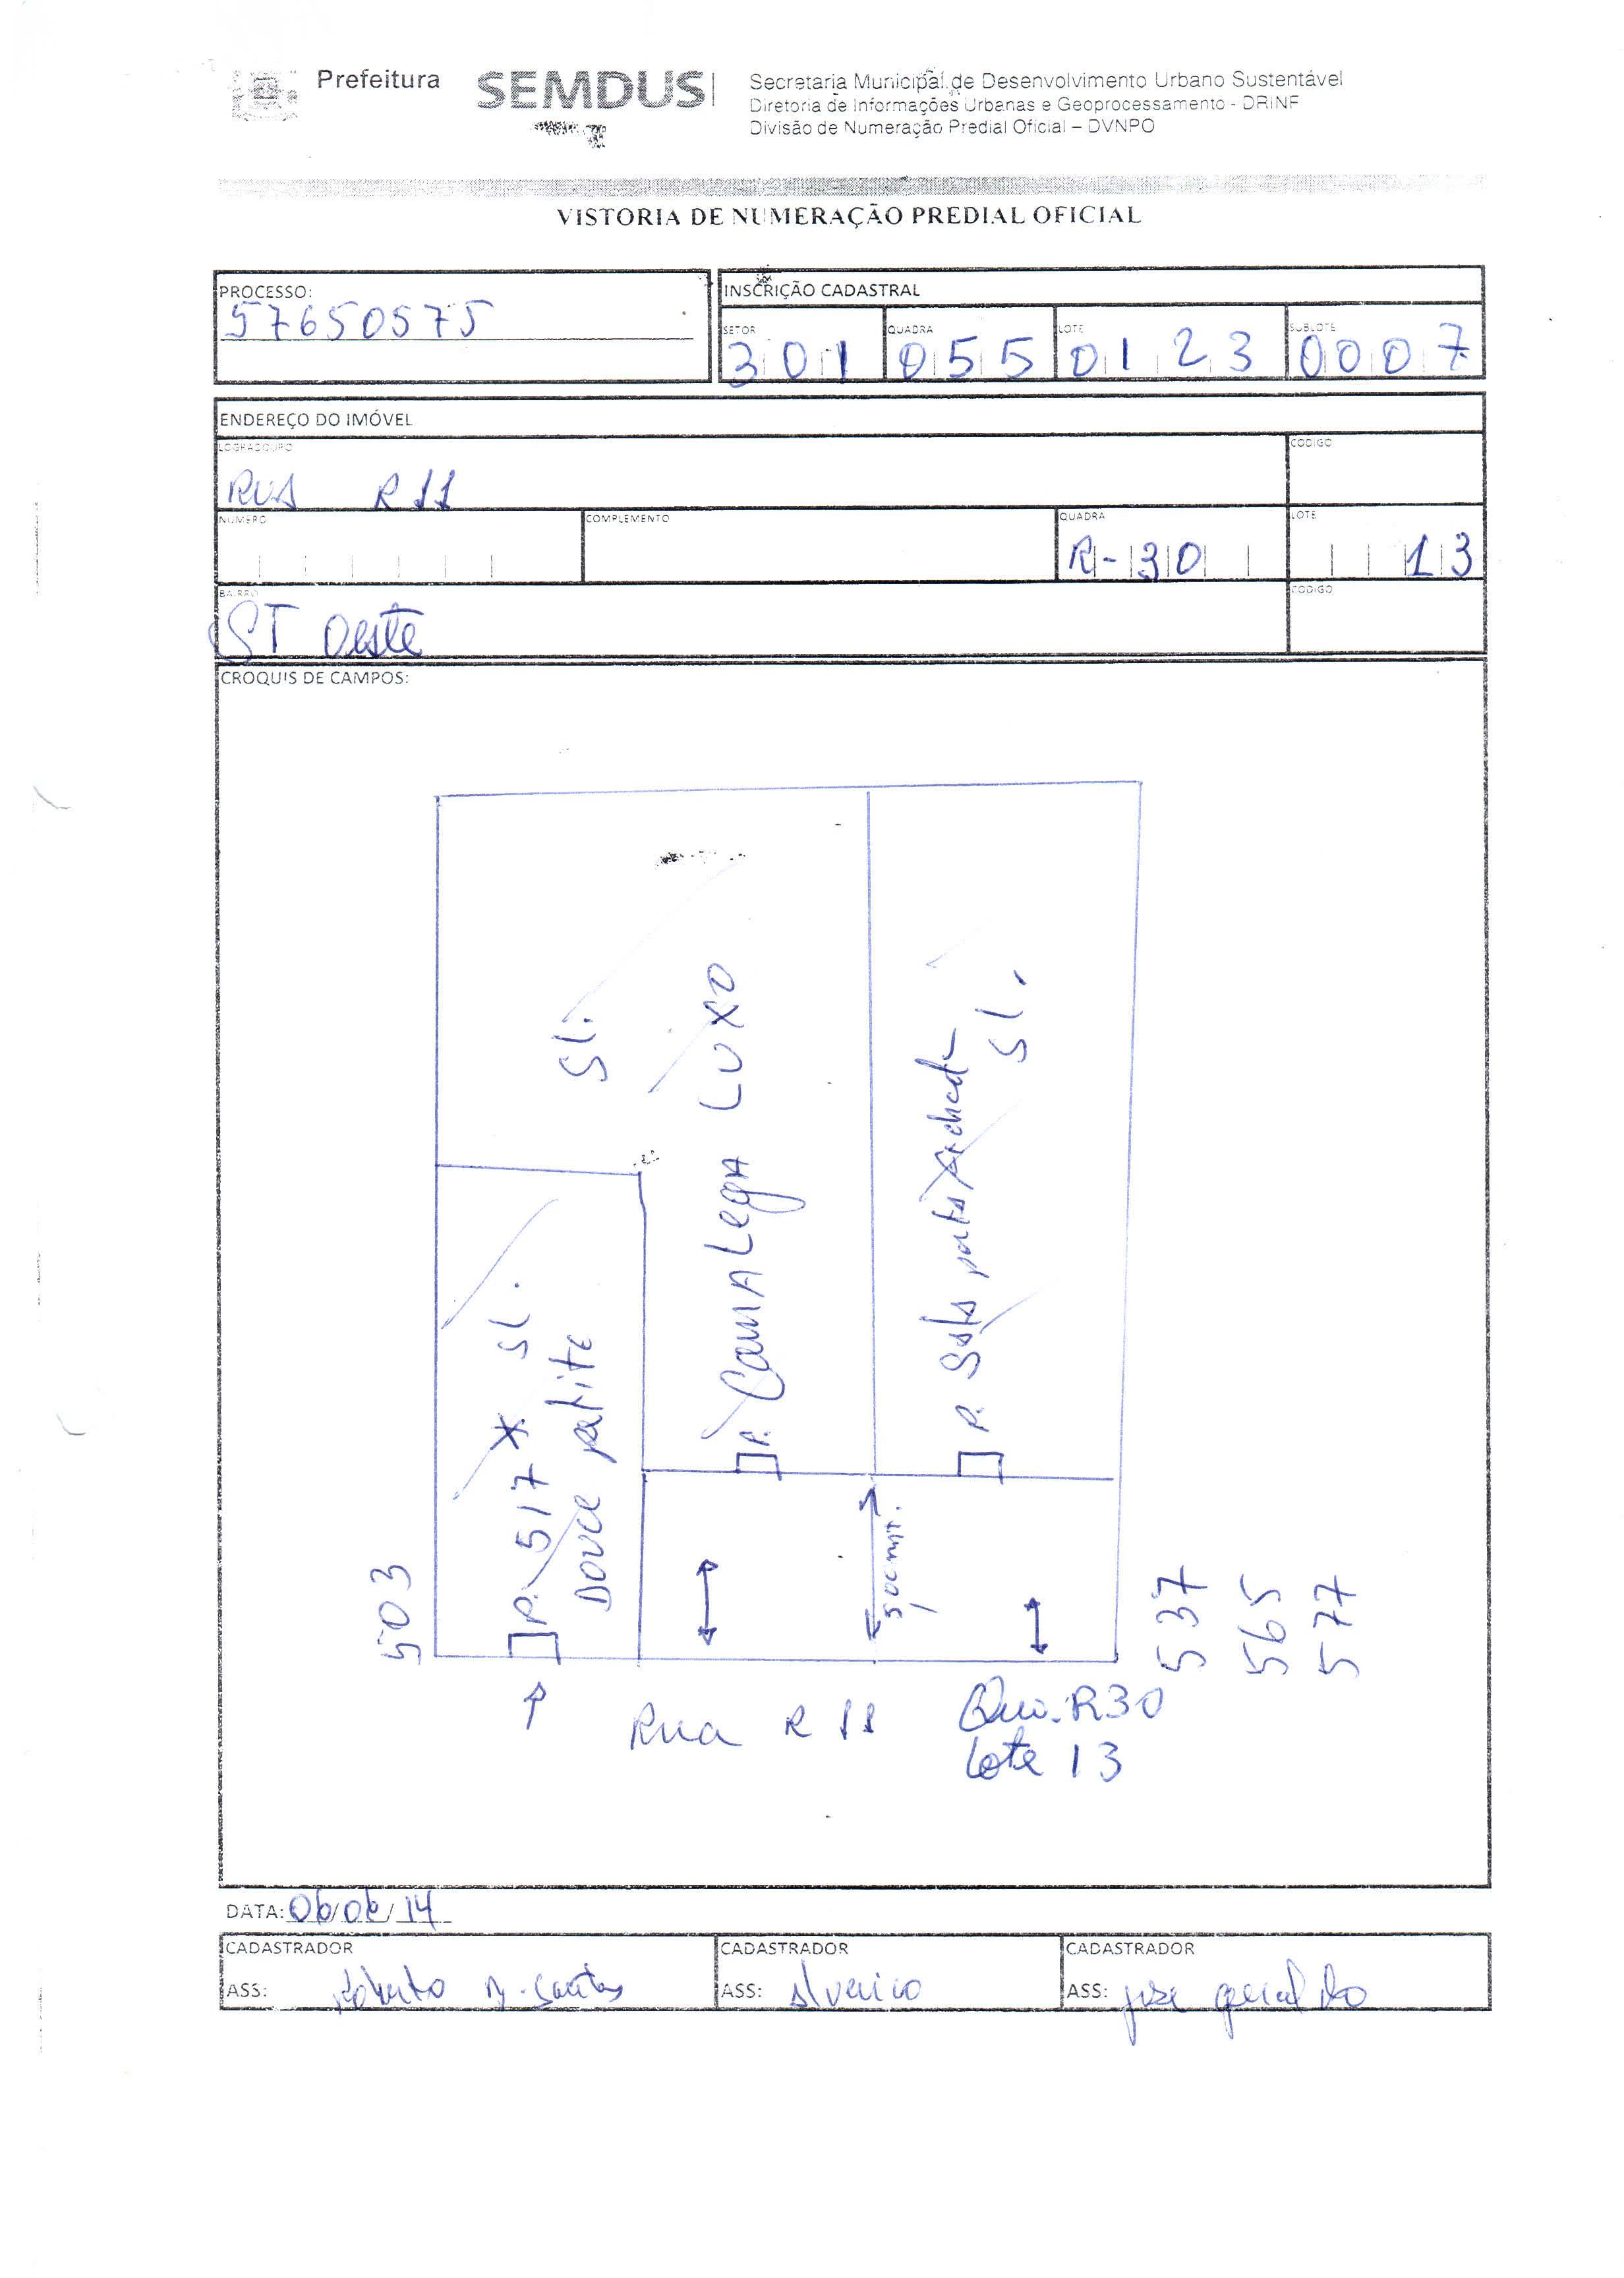 Prefeitura
SEMDUS
Secretaria Municipal de Desenvolvimento Urbano Sustentável
Diretoria de Informações Urbanas e Geoprocessamento - DRINF
Divisão de Numeração Predial Oficial – DVNPO
VISTORIA DE NUMERAÇÃO PREDIAL OFICIAL
PROCESSO:
57650575
INSCRIÇÃO CADASTRAL
SETOR QUADRA LOTE SUBLOTE
301 055 0123 0007
ENDEREÇO DO IMÓVEL
LOGRADOURO CODIGO
RUA R 11
NUMERO COMPLEMENTO QUADRA LOTE
R-30 13
BAIRRO CODIGO
ST Oeste
CROQUIS DE CAMPOS:
503
P. 517 * Sl.
Douce
Sl.
P. CamaLegn LUXO
P. Sala
Sl.
5,00 mt.
537
565
577
Rua R 11
Qua. R30
Lote 13
DATA: 06/06/14
CADASTRADOR CADASTRADOR CADASTRADOR
ASS: Roberto M. Santos ASS: ASS: jose geraldo